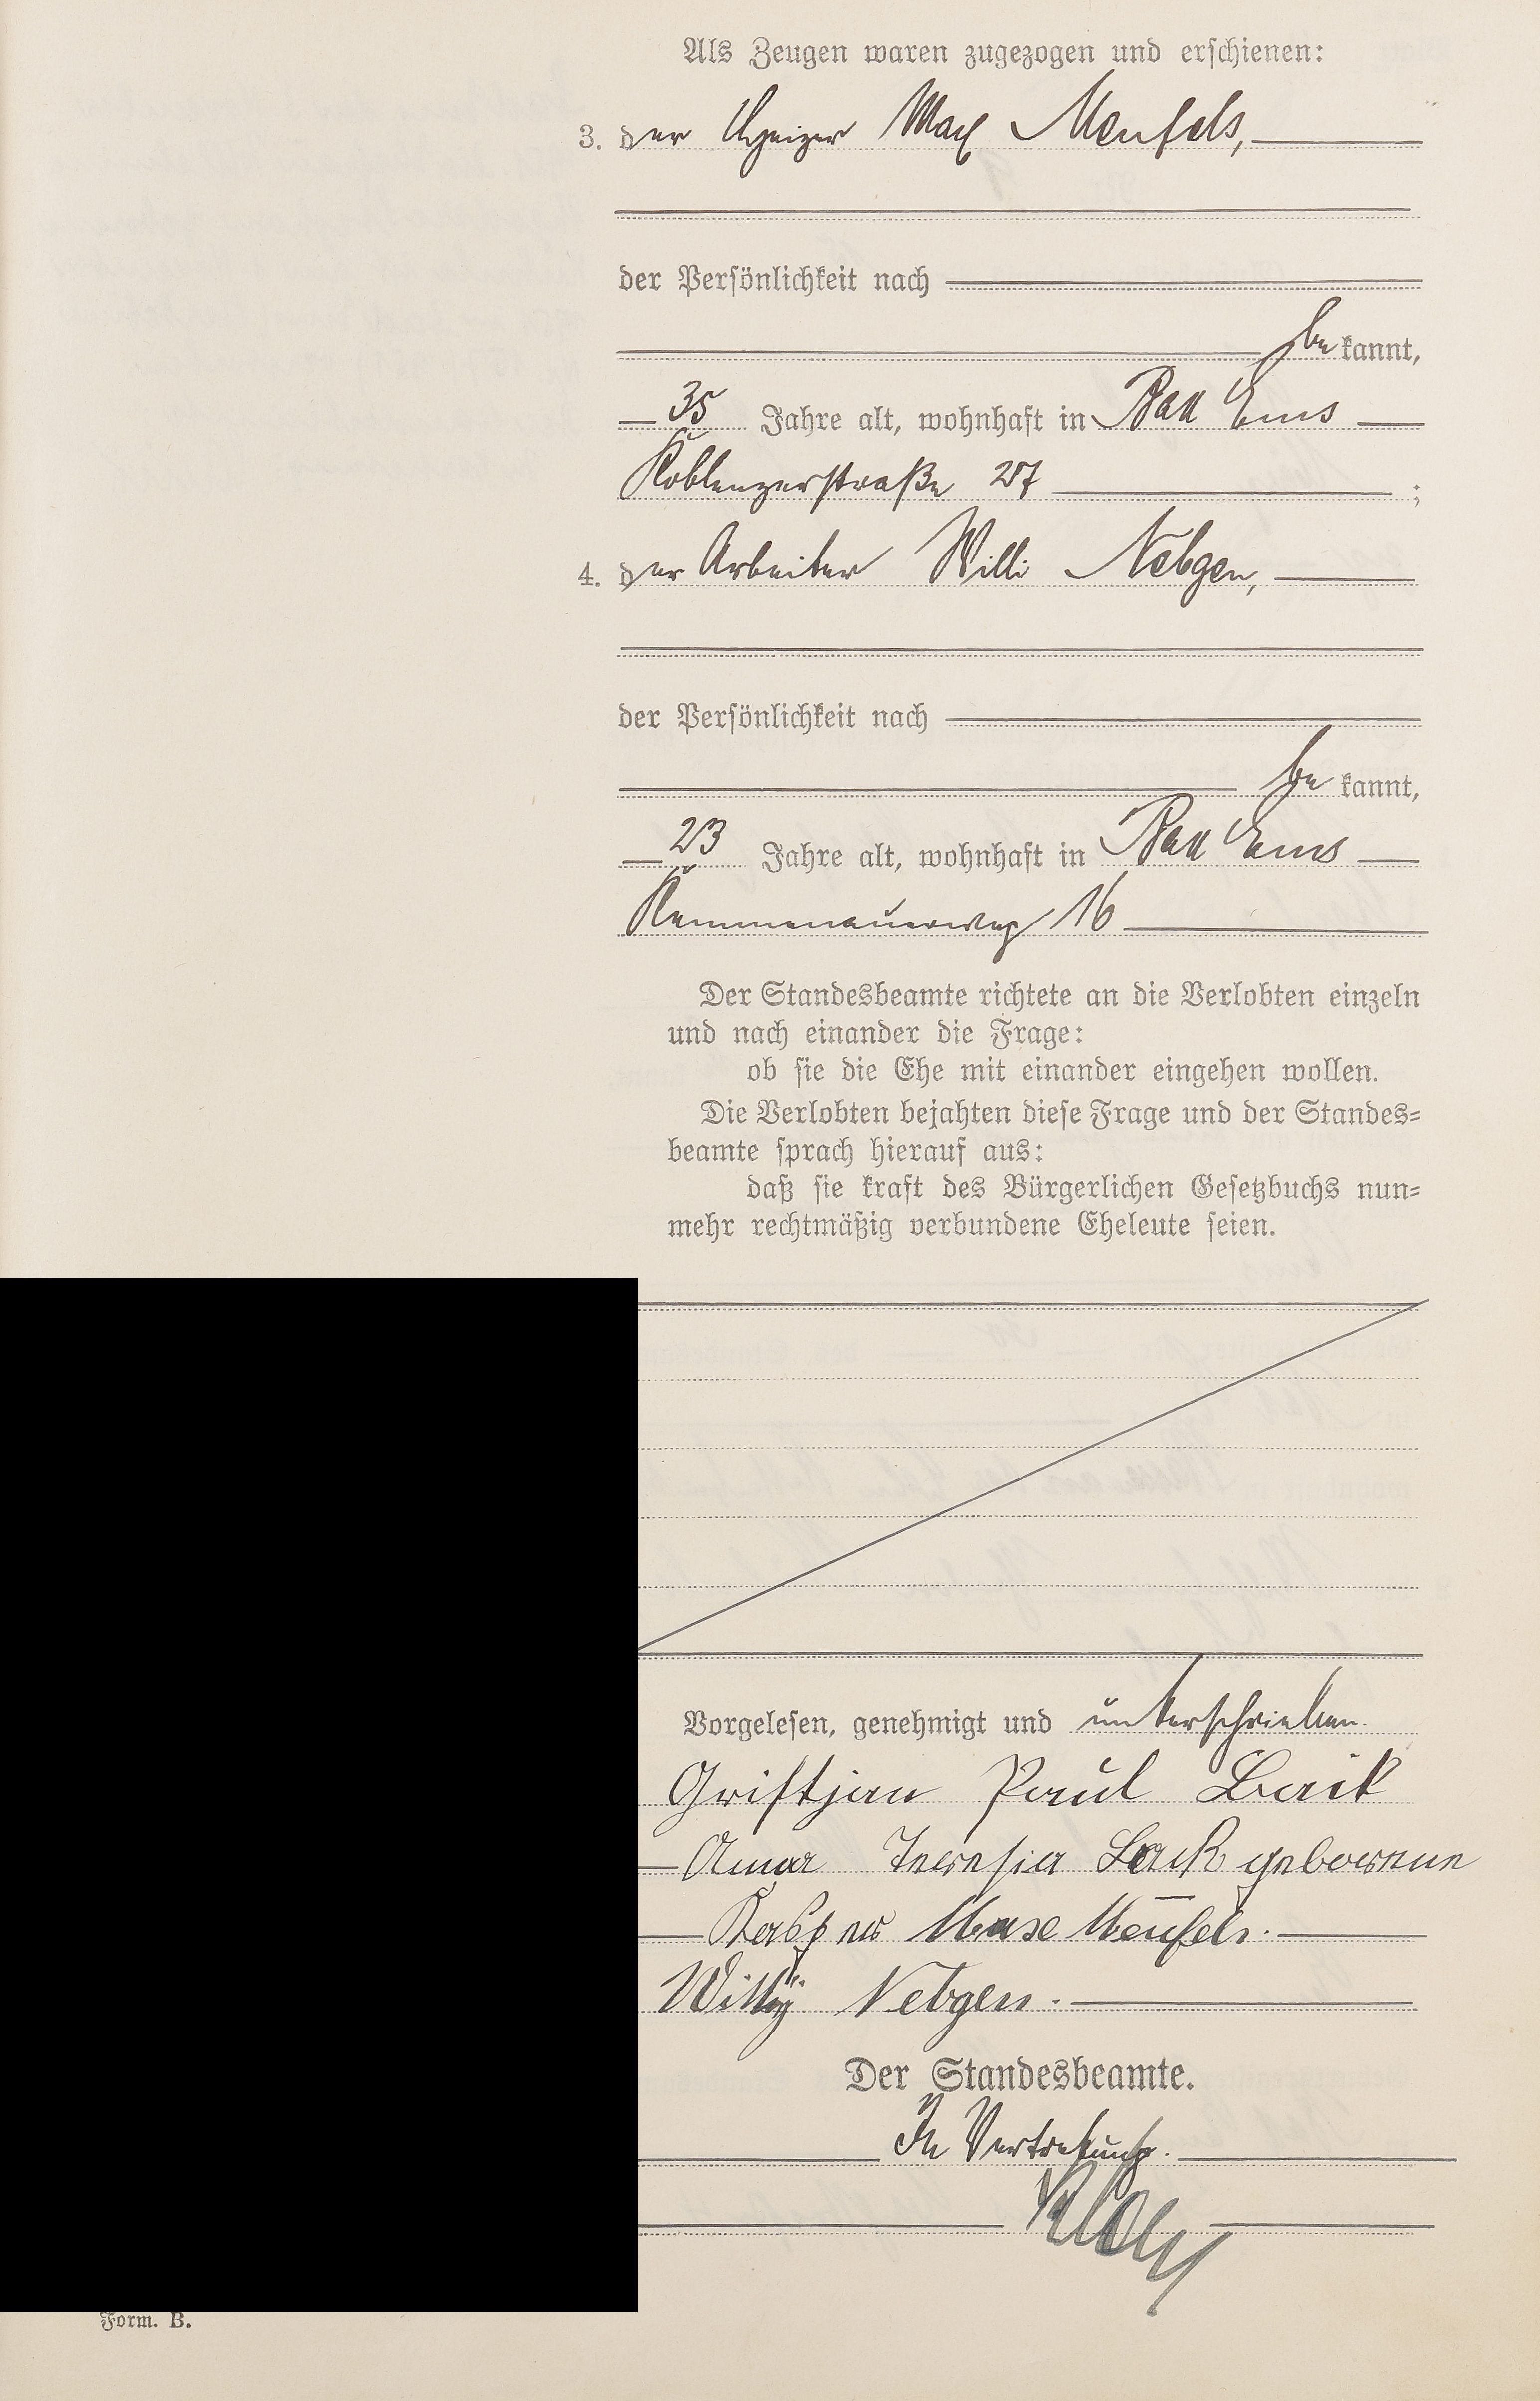 Als Zeugen waren zugezogen und erschienen:
3. der Heizer Max Meufels,
der Persönlichkeit nach
bekannt,
35 Jahre alt, wohnhaft in Bad Ems
Koblenzerstraße 27 ;
4. der Arbeiter Willi Nebgen,
der Persönlichkeit nach
bekannt,
23 Jahre alt, wohnhaft in Bad Ems
Kemmenauerweg 16
Der Standesbeamte richtete an die Verlobten einzeln
und nach einander die Frage:
ob sie die Ehe mit einander eingehen wollen.
Die Verlobten bejahten diese Frage und der Standes-
beamte sprach hierauf aus:
daß sie kraft des Bürgerlichen Gesetzbuchs nun-
mehr rechtmäßig verbundene Eheleute seien.
Vorgelesen, genehmigt und unterschrieben.
Paul
Teresia geborene
Meufels.
Willy Nebgen.
Der Standesbeamte.
In Vertretung.
Form. B.